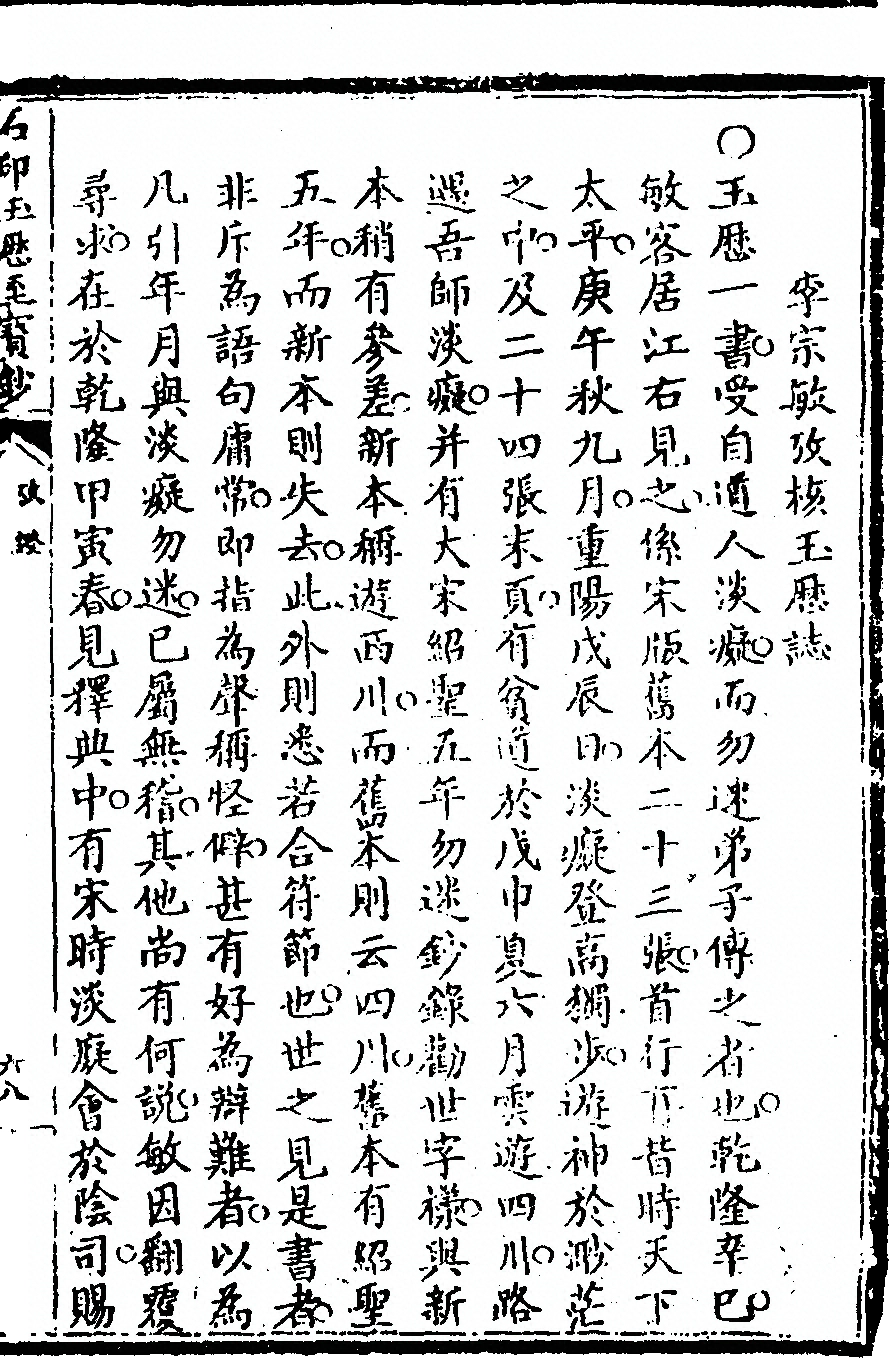 李宗敏攷核玉歷誌
○玉歷一書○受自道人淡癡○而勿迷弟子傳之者也○乾隆辛巳○
敏客居江右見之○係宋版舊本二十三張○首行有昔時天下
太平○庚午秋九月○重陽戊辰日○淡癡登高獨步○遊神於渺茫
之中○及二十四張末頁○有貧道於戊申夏六月雲遊四川○路
遇吾師淡癡○并有大宋紹聖五年勿迷鈔錄勸世字樣○與新
本稍有參差○新本稱遊西川○而舊本則云四川○舊本有紹聖
五年○而新本則失去○此外則悉若合符節也○世之見是書者○
非斥為語句庸常○即指為聲稱怪僻○甚有好為辯難者○以為
凡引年月與淡癡勿迷○已屬無稽○其他尚有何說○敏因翻覆
尋求○在於乾隆甲寅春○見釋典中○有宋時淡癡會於陰司○賜
石印玉歷至寶鈔
攷證
六八